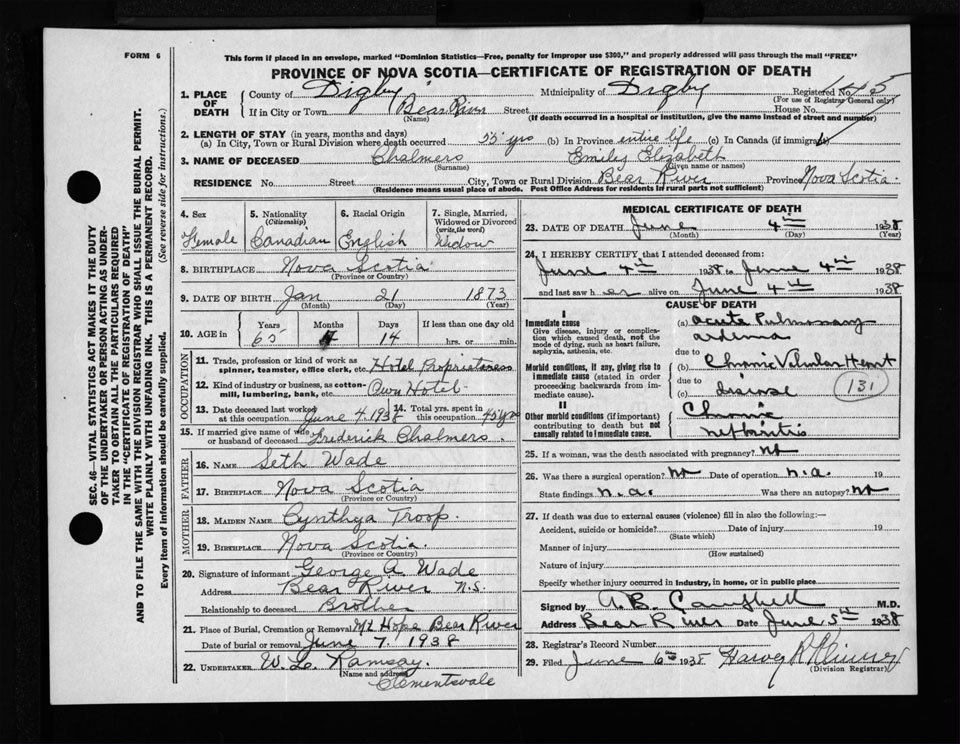 FORM 6
This form if placed in an envelope, marked "Dominion Statistics—Free, penalty for improper use $300," and properly addressed will pass through the mail "FREE"
PROVINCE OF NOVA SCOTIA—CERTIFICATE OF REGISTRATION OF DEATH
1. PLACE OF DEATH
County of Digby Municipality of Digby Registered No.
(For use of Registrar General only)
If in City or Town Bear River Street House No.
(Name) (If death occurred in a hospital or institution, give the name instead of street and number)
2. LENGTH OF STAY (in years, months and days)
(a) In City, Town or Rural Division where death occurred 55 yrs (b) In Province entire life (c) In Canada (if immigrant)
3. NAME OF DECEASED Chalmers Emily Elizabeth
(Surname) (Given name or names)
RESIDENCE No. Street City, Town or Rural Division Bear River Province Nova Scotia.
(Residence means usual place of abode. Post Office Address for residents in rural parts not sufficient)
4. Sex
Female
5. Nationality (Citizenship)
Canadian
6. Racial Origin
English
7. Single, Married, Widowed or Divorced (write the word)
Widow
8. BIRTHPLACE Nova Scotia
(Province or Country)
9. DATE OF BIRTH Jan 21 1873
(Month) (Day) (Year)
10. AGE in Years Months Days If less than one day old
65 4 14 hrs. or min.
OCCUPATION
11. Trade, profession or kind of work as spinner, teamster, office clerk, etc. Hotel Proprietoress
12. Kind of industry or business, as cotton-mill, lumbering, bank, etc. Own Hotel
13. Date deceased last worked at this occupation June 4, 1938 14. Total yrs. spent in this occupation 45 yrs
15. If married give name of wife or husband of deceased Frederick Chalmers.
FATHER
16. NAME Seth Wade
17. BIRTHPLACE Nova Scotia
(Province or Country)
MOTHER
18. MAIDEN NAME Cynthya Troop.
19. BIRTHPLACE Nova Scotia.
(Province or Country)
20. Signature of informant George A Wade
Address Bear River N.S.
Relationship to deceased Brother
21. Place of Burial, Cremation or Removal Mt Hope Bear River
Date of burial or removal June 7. 1938
22. UNDERTAKER W. Ramsay.
(Name and address)
Clementsvale
MEDICAL CERTIFICATE OF DEATH
23. DATE OF DEATH June 4th 1938
(Month) (Day) (Year)
24. I HEREBY CERTIFY that I attended deceased from:
June 4th 1938 to June 4th 1938
and last saw her alive on June 4th 1938
CAUSE OF DEATH
I
Immediate cause
Give disease, injury or complication which caused death, not the mode of dying, such as heart failure, asphyxia, asthenia, etc.
(a) Acute Pulmonary Œdema
due to
Morbid conditions, if any, giving rise to immediate cause (stated in order proceeding backwards from immediate cause).
(b) Chronic Valvular Heart
due to
(c) disease
131
II
Other morbid conditions (if important) contributing to death but not causally related to immediate cause.
Chronic
Nephritis
25. If a woman, was the death associated with pregnancy? No
26. Was there a surgical operation? No Date of operation n.a. 19
State findings n.a. Was there an autopsy? No
27. If death was due to external causes (violence) fill in also the following:—
Accident, suicide or homicide? Date of injury 19
(State which)
Manner of injury
(How sustained)
Nature of injury
Specify whether injury occurred in industry, in home, or in public place
Signed by A. B. Campbell M.D.
Address Bear River Date June 5th 1938
28. Registrar's Record Number
29. Filed June 6th 1938
(Division Registrar)
SEC. 46—VITAL STATISTICS ACT MAKES IT THE DUTY
OF THE UNDERTAKER OR PERSON ACTING AS UNDER-
TAKER TO OBTAIN ALL THE PARTICULARS REQUIRED
IN THE "CERTIFICATE OF REGISTRATION OF DEATH"
AND TO FILE THE SAME WITH THE DIVISION REGISTRAR WHO SHALL ISSUE THE BURIAL PERMIT.
WRITE PLAINLY WITH UNFADING INK. THIS IS A PERMANENT RECORD.
Every item of information should be carefully supplied. (See reverse side for instructions.)